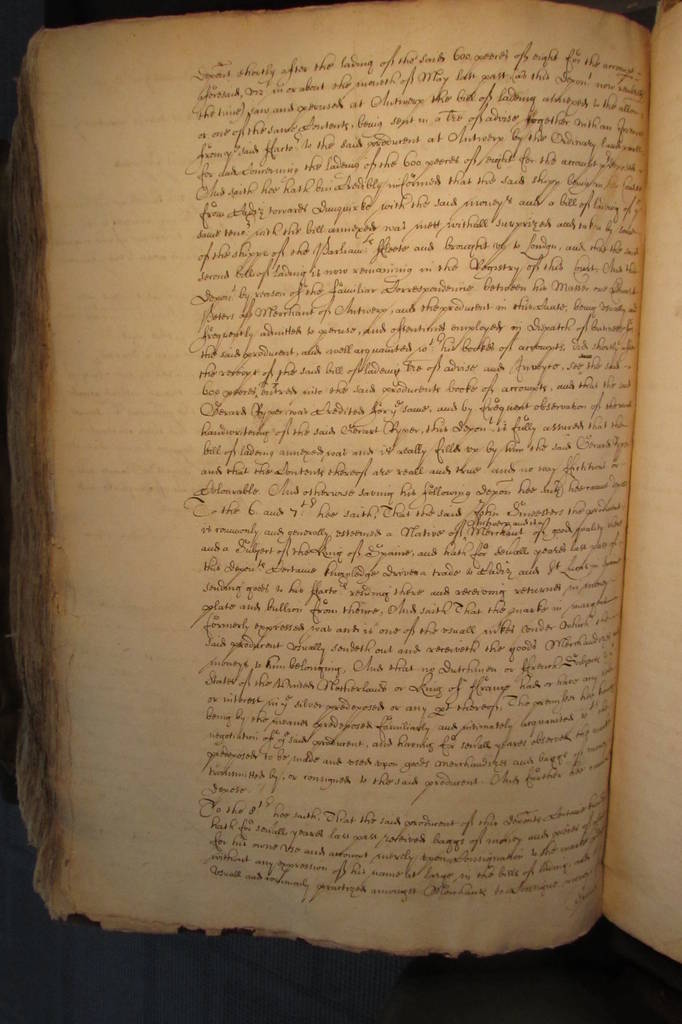 deponent shortly after the lading of the said 600. peeces of eight for the accompt
aforesaid, viz: in or about the moneth of May last past, (as this depon:t now
the time) saw and perused at Antwerp the bill of lading annexed to the
or one of the same Contents, being sent in a lre of advise together with an Invoyce
from y:e said Factor to the said producent at Antwerp by the Ordinary
for and Concerning the lading of the 600 peeces of eight for the accompt predeposed
And saith hee hath bin Credibly informed that the said shipp being in
from Cadiz towards Dunquirke with the said moneys and a bill of lading of y:e
same teno:r with the bill annexed was mett withall surprized and taken by some
of the shipps of the Parliam:ts Fleete and brought to London, and that the said
second bill of lading is now remaining in the Registry of this Court. And this
Depon:t by reason of the familiar Correspondence between his Master
Peters a Merchant of Antwerp, and the producent in this Cause, being usually and
frequently admitted to peruse, and oftentimes employed in dispatch of business for
the said producent, and well acquainted w:th his bookes of accompts, did shortly after
the receipt of the said bill of lading lre of advise and Invoyce, see the said
600 peeces entred into the said producents booke of accompts, and that the said
Gerard Ryper was Credited for y:e same, and by frequent observation of the
handwriting of the said Gerart Ryper, this depon:t is fully assured that the
bill of lading annexed was and is really filled by him the said Gerard
and that the Contents thereof are reall and true and no way fictitious or
Colourable. And otherwise saving his following depon hee saith hee cannot
To the 6. and 7:th hee saith, That the said John the producent
is commonly and generally esteemed a Native of Antwerp and is a Merchant of good quality there
and a Subject of the King of Spaine, and hath for severall yeares last past of
this depon:ts Certaine knowledge driven a trade to Cadiz and S:t Lucar in
sending goods to his Factors residing there and receiving returnes in money
plate and bullion from thence, And saith That the marke in margent
formerly expressed was and is one of the usuall markes under which the
said producent usually sendeth out and receiveth the goods Merchandizes
moneys to him belonging, And that no Dutchmen or French Subjects of
States of the United Netherlands or King of France had or have any
or interest in y:e silver predeposed or any p:t thereof; The premisses hee
being by the meanes predeposed familiarly and intimately acquainted w:th the
negotiation of y:e said producent, and having for severall yeares observed the
predeposed to be made and used upon goods merchandizes and baggs of money
transmitted by, or consigned to the said producent. And further hee cannot
depose.
To the 8:th hee saith, That the said producent of this deponents Certaine
hath for severall yeares last past received baggs of money and peeces of
for his owne use and accompt meerly upon Consignation to the marke
without any expression of his name at large, in the bills of lading
usuall and commonly practized amongst Merchants to